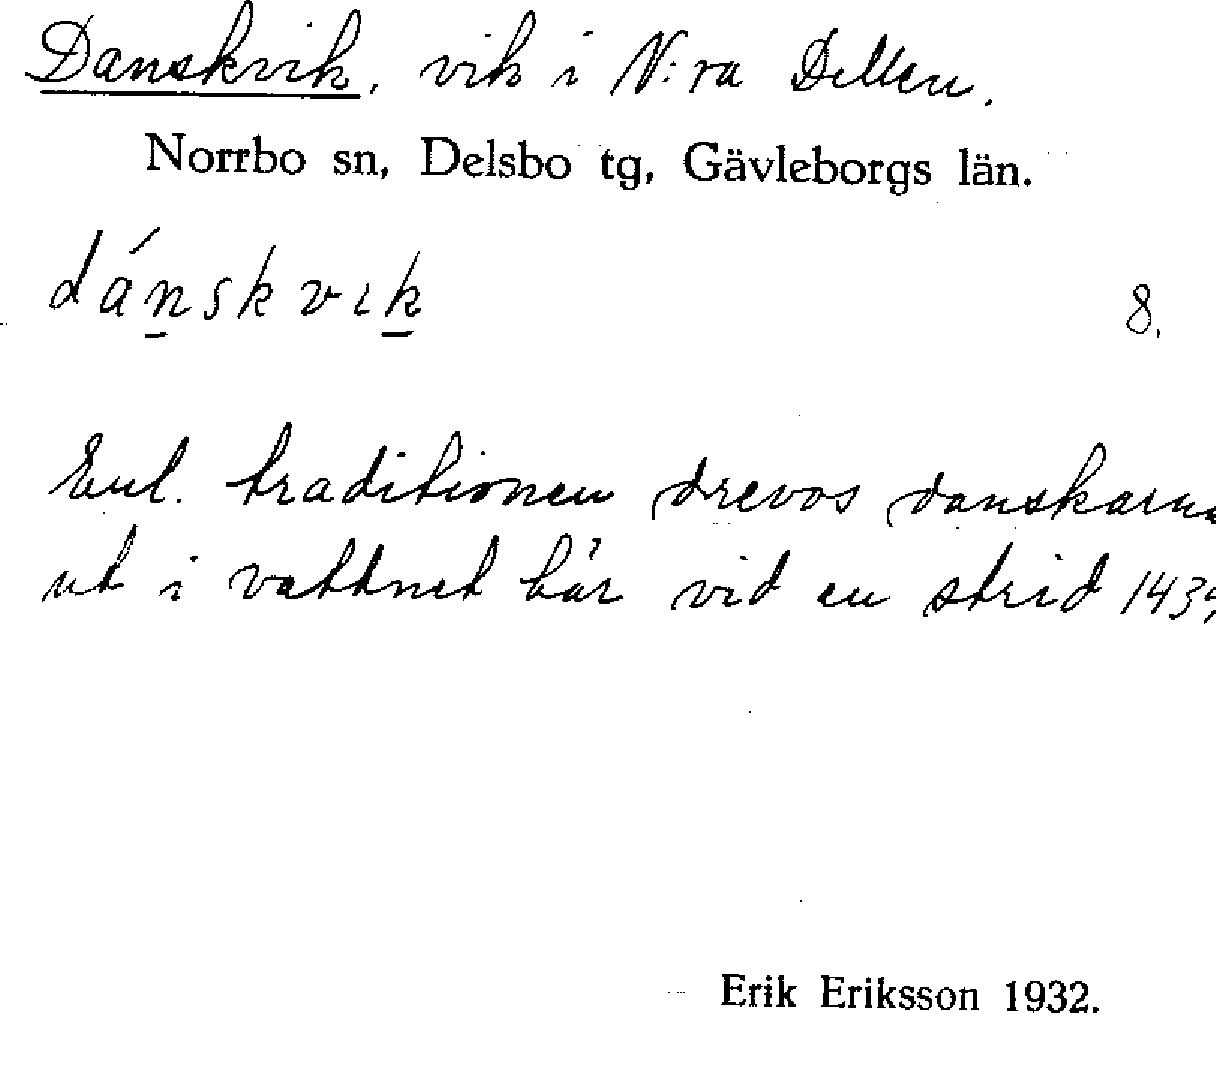 Danskvik, vik i N:ra Dellen.
Norrbo sn, Delsbo tg, Gävleborgs län.
dánskvık 8.
Enl. traditionen drevos danskarna
ut i vattnet här vid en strid
Erik Eriksson 1932.